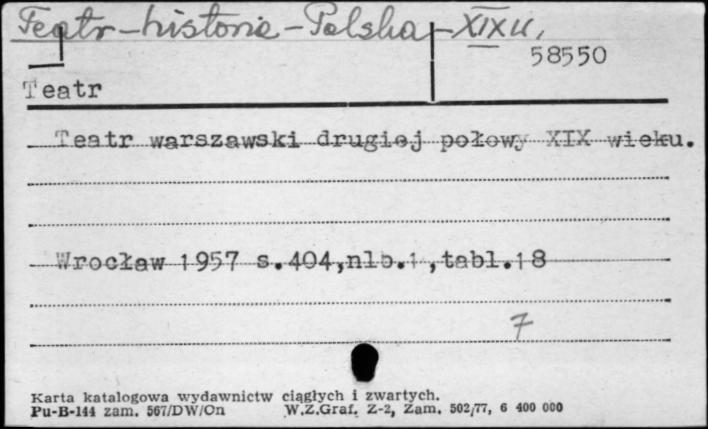 Teatr - historia - Polska - XIX w.
58550
Teatr
Teatr warszawski drugiej połowy XIX wieku.
Wrocław 1957 s.404,nlb.1,tabl.18
7
Karta katalogowa wydawnictw ciągłych i zwartych.
Pu-B-144 zam. 567/DW/On W.Z.Graf. Z-2, Zam. 502/77, 6 400 000